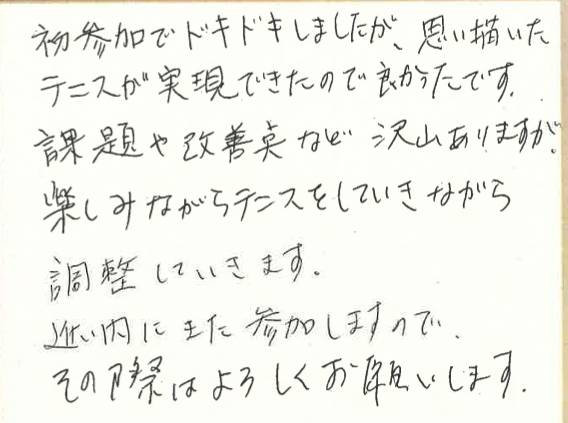 初参加でドキドキしましたが、思い描いた
テニスが実現できたので良かったです。
課題や改善点など沢山ありますが、
楽しみながらテニスをしていきながら
調整していきます。
近い内にまた参加しますので、
その際はよろしくお願いします。